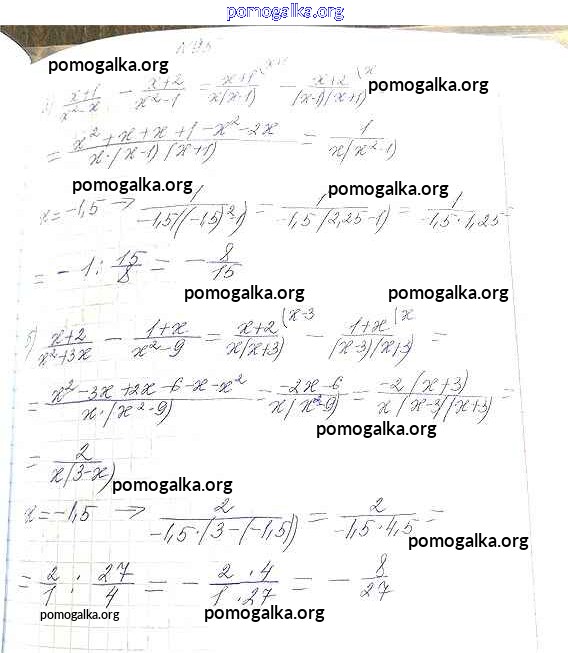 pomogalka.org
N 95
pomogalka.org
а) (x+1)/(x²-x) - (x+2)/(x²-1) = (x+1)/(x(x-1)) (x+1 - (x+2)/((x-1)(x+1)) (x
pomogalka.org
= (x²+x+x+1-x²-2x)/(x·(x-1)(x+1)) = 1/(x(x²-1))
pomogalka.org pomogalka.org
x=-1,5 → 1/(-1,5((-1,5)²-1)) = 1/(-1,5(2,25-1)) = 1/(-1,5·1,25) =
= -1 : 15/8 = -8/15
pomogalka.org pomogalka.org
б) (x+2)/(x²+3x) - (1+x)/(x²-9) = (x+2)/(x(x+3)) (x-3 - (1+x)/((x-3)(x+3)) (x =
= (x²-3x+2x-6-x-x²)/(x·(x²-9)) = (-2x-6)/(x(x²-9)) = (-2(x+3))/(x(x-3)(x+3)) =
pomogalka.org
= 2/(x(3-x))
pomogalka.org
x=-1,5 → 2/(-1,5·(3-(-1,5))) = 2/(-1,5·4,5) =
pomogalka.org
= 2/1 : 27/4 = - (2·4)/(1·27) = - 8/27
pomogalka.org pomogalka.org